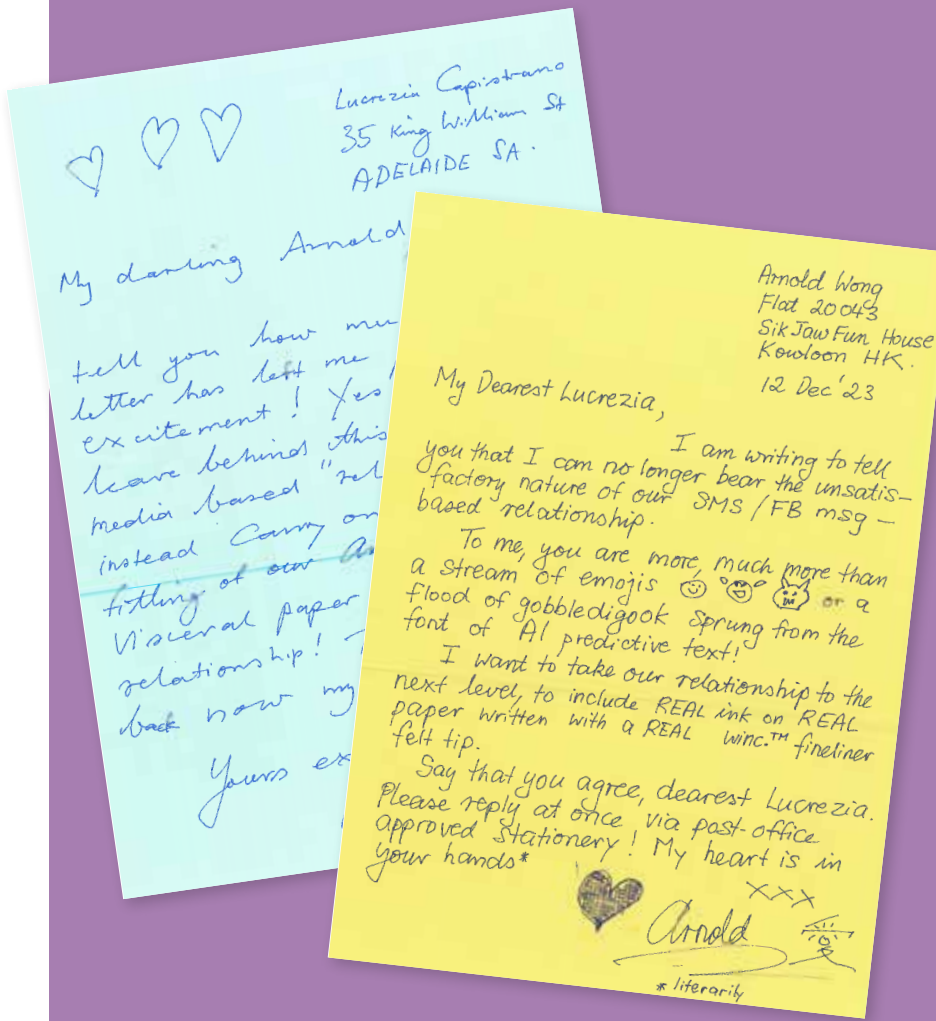 Lucrezia Capistrano
35 King William St
ADELAIDE SA.
My darling Arnold
tell you how
letter has left me
excitement! Yes
leave behind this
media based "rel
instead Carry on
fitting of our
Visceral paper
relationship!
back now my
Yours ex
Arnold Wong
Flat 20043
Sik Jaw Fun House
Kowloon HK.
12 Dec '23
My Dearest Lucrezia,
I am writing to tell
you that I can no longer bear the unsatis-
factory nature of our SMS / FB msg -
based relationship.
To me, you are more, much more than
a stream of emojis or a
flood of gobbledigook sprung from the
font of AI predictive text!
I want to take our relationship to the
next level, to include REAL ink on REAL
paper written with a REAL winc.™ fineliner
felt tip.
Say that you agree, dearest Lucrezia.
Please reply at once via post-office
approved Stationery! My heart is in
your hands*
XXX
Arnold
* literarily